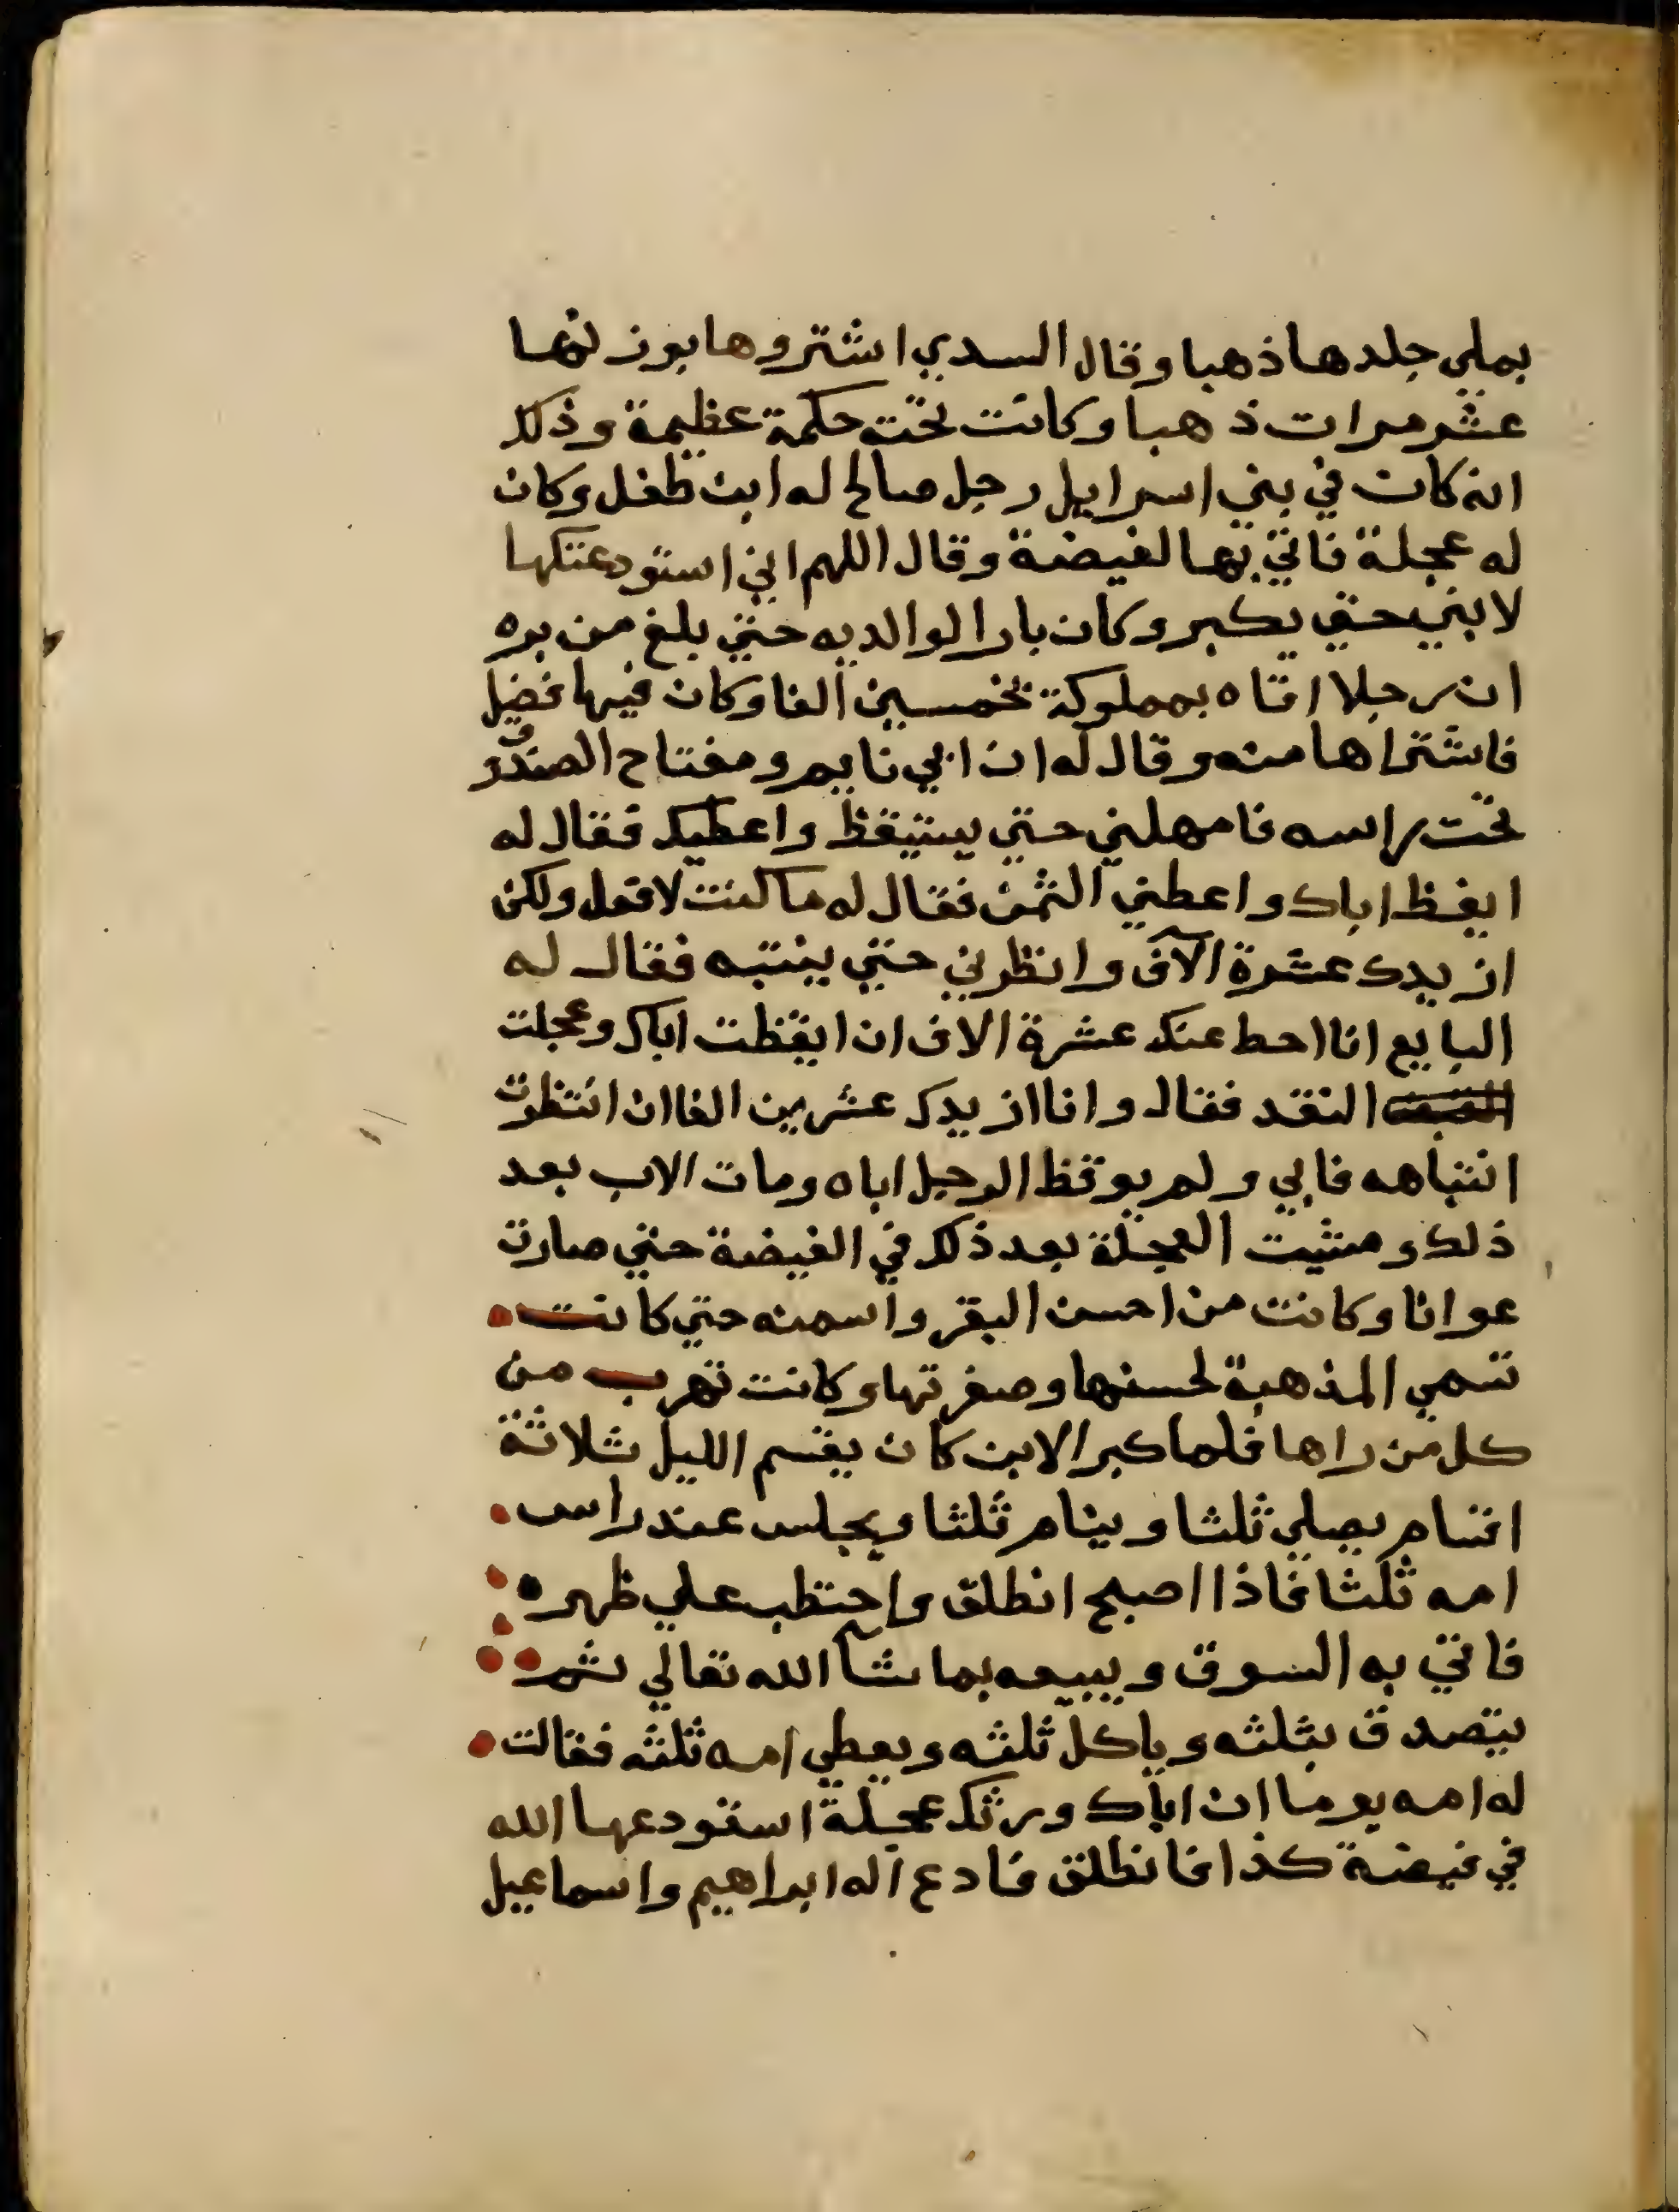 بملى جلدها ذهبا وقال السدي اشتروها بوزنها
عشر مرات ذهبا وكانت تحته حكمة عظيمة وذلك
انه كان في بني اسرايل رجل صالح له ابن طفل وكان
له عجلة فاتي بها الغيضة وقال اللهم اني استودعتكها
لابني حتي يكبر وكان بارا لوالديه حتي بلغ من بره
ان رجلا اتاه بمملوكة بخمسين الفا وكان فيها فضل
فاشتراها منه وقال له ان ابي نايم ومفتاح الصندوق
تحت راسه فامهلني حتي يستيقظ واعطيك فقال له
ايقظ اباك واعطني الثمن فقال له ما كنت لافعل ولكن
ازيدك عشرة آلاف وانظرني حتي ينتبه فقال له
البايع انا احط عنك عشرة الاف ان ايقظت اباك وعجلت
النقد فقال وانا ازيدك عشرين الفا ان انتظرت
انتباهه فابي ولم يوقظ الرجل اباه ومات الاب بعد
ذلك ومشيت العجلة بعد ذلك في الغيضة حتي صارت
عوانا وكانت من احسن البقر واسمنه حتي كانت
تسمي المذهبة لحسنها وصفرتها وكانت تهرب من
كل من راها فلما كبر الابن كان يقسم الليل ثلاثة
اقسام يصلي ثلثا وينام ثلثا ويجلس عند راس
امه ثلثا فاذا اصبح انطلق واحتطب علي ظهره
فاتي به السوق ويبيعه بما شا الله تعالي ثم
يتصدق بثلثه وياكل ثلثه ويعطي امه ثلثه فقالت
له امه يوما ان اباك ورثك عجلة استودعها الله
في غيضة كذا فانطلق فادع اله ابراهيم واسماعيل